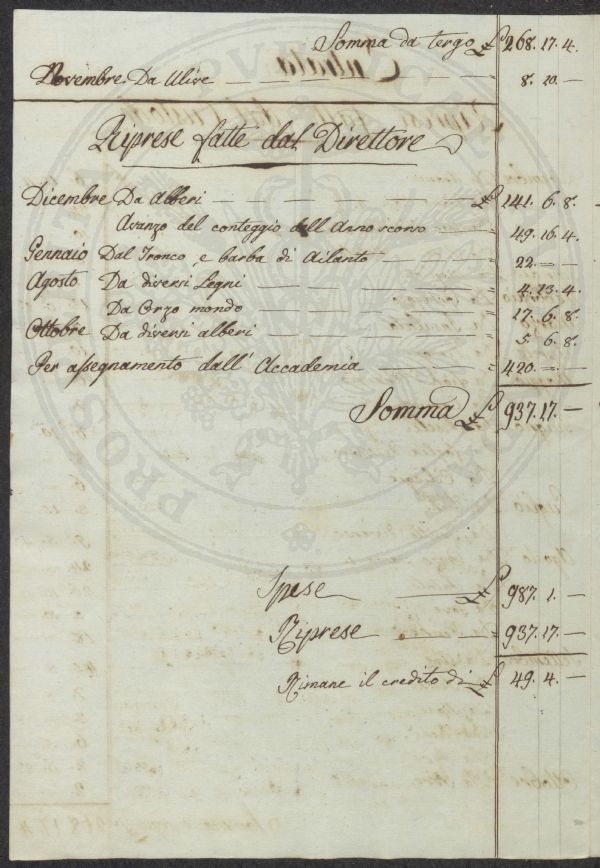 Somma da tergo £ 268. 17. 4.
Novembre Da Ulive — 8. 10. —
Riprese fatte dal Direttore
Dicembre Da Alberi — £ 141. 6. 8.
Avanzo del conteggio dell'Anno scorso " 49. 16. 4.
Gennaio Dal Tronco, e barba di Ailanto — " 22. — —
Agosto Da diversi Legni — " 4. 13. 4.
Da Orzo mondo — " 17. 6. 8.
Ottobre Da diversi alberi — " 5. 6. 8.
Per assegnamento dall'Accademia — " 420. — —
Somma £ 937. 17. —
Spese — £ 987. 1. —
Riprese — " 937. 17. —
Rimane il credito di £ 49. 4. —